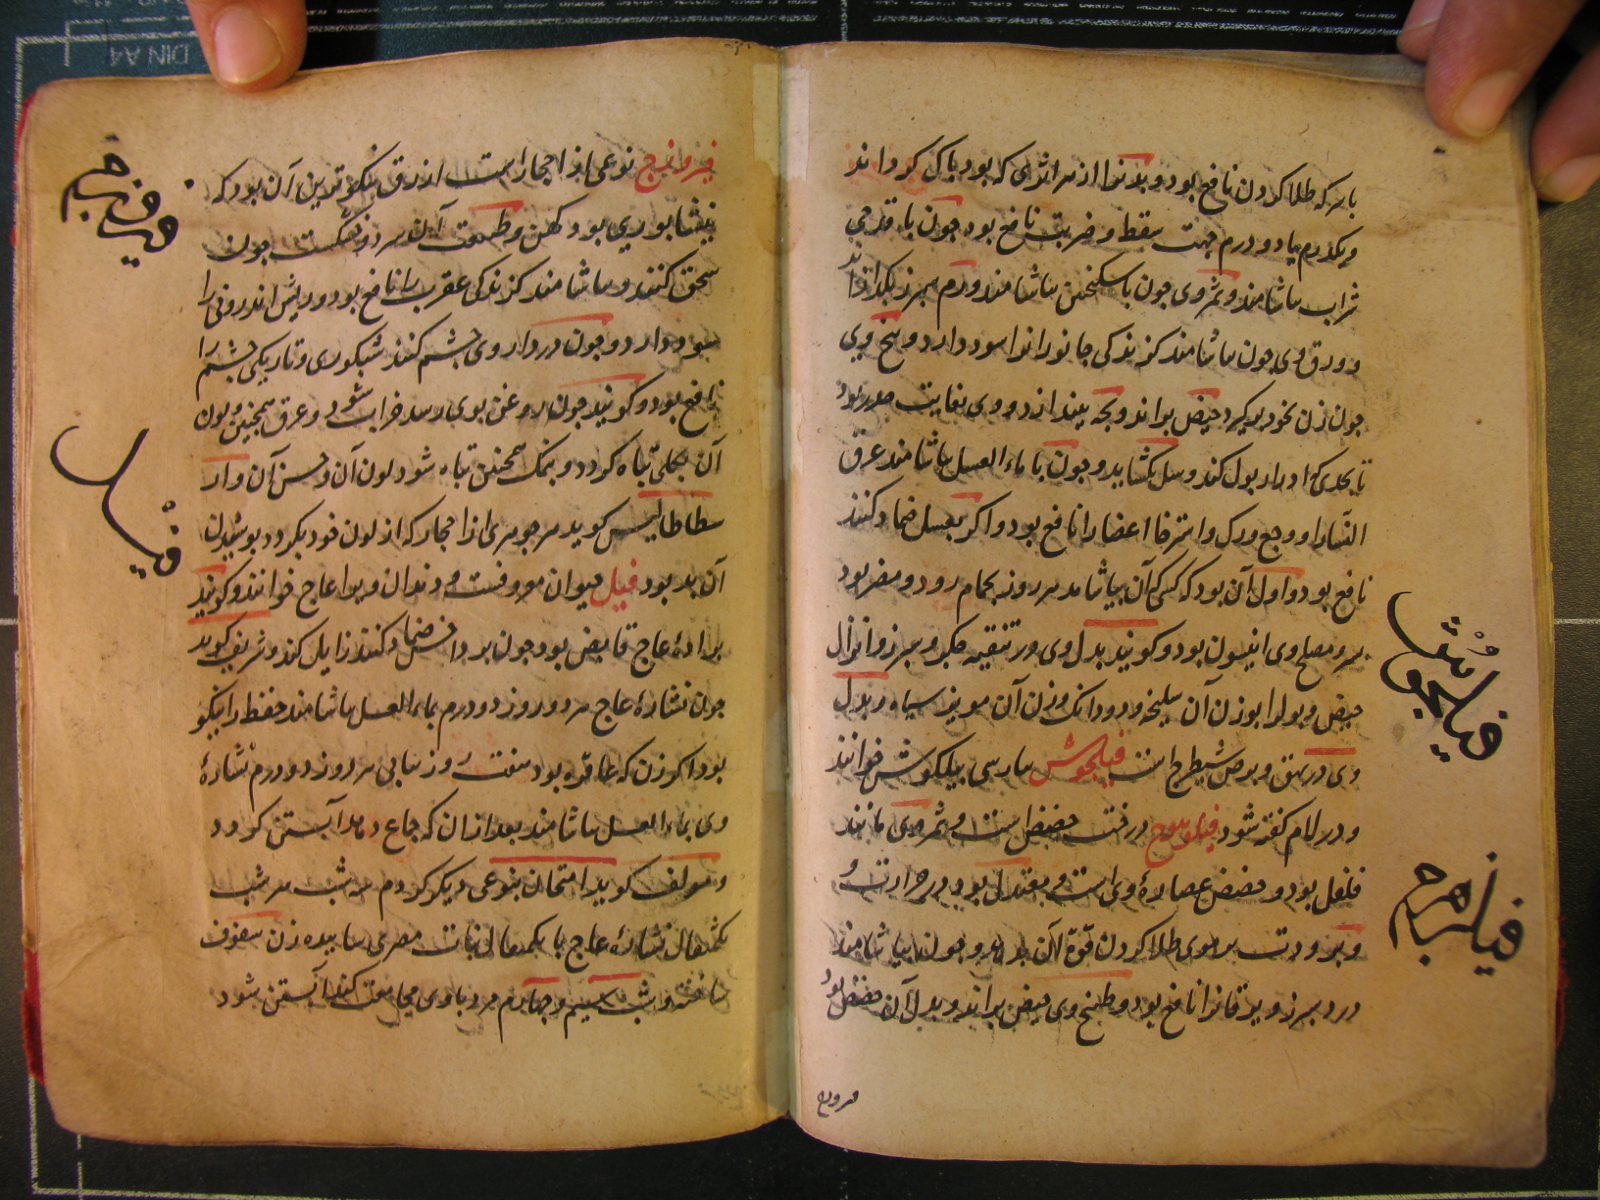 با سرکه طلا کردن نافع بود و بدنرا از هر اثری که بود پاک گرداند
و یکدرم یا دو درم جهت سقطه و ضربت نافع بود چون با قدحی
شراب بیاشامند و ثمر وی چون با سکنجبین بیاشامند ورم سپرز بگدازاند
و ورق وی چون بیاشامند گزندگی جانورانرا سود دارد و بیخ وی
چون زن بخود برگیرد حیض براند و بچه بیندازد و وی بغایت مدر بود
تا بحدی که ادرار بول کند و بکشاید و چون با ماء العسل بیاشامند عرق
النسا را و وجع ورک و استرخا اعضا را نافع بود و اگر بعسل ضماد کنند
نافع بود و اولی آن بود که کسی که آن بیاشامد هر روز بحمام رود و مضر بود
بسر و مصلح وی انیسون بود و گویند بدل وی در تنقیه جگر و سپرز و انزال
حیض و بول را بوزن آن سلیخه و دو دانک وزن آن مویز سیاه و بدل
وی در بهق و برص شیطرج است فیلجوش بپارسی پیلگوش خوانند
و در لام گفته شود فیلزهرج درخت حضض است و ثمر وی مانند
فلفل بود و حضض عصاره وی است و معتدل بود در حرارت و
و برودت بر موی طلا کردن قوة آن بدهد و چون بیاشامند
درد سپرز و یرقانرا نافع بود و طبیخ وی حیض براند و بدل آن حضض بود
فیلجوش
فیلزهرج
فیروزج
فیروزج نوعی از احجار است ازرق نیکوترین آن بود که
نیشابوری بود و کهن و طبیعت آن سرد و خشکست چون
سحق کنند و بیاشامند گزندگی عقرب را نافع بود و ریش اندرونی را
سود دارد و چون در داروی چشم کنند شبکوری و تاریکی چشم را
نافع بود و گویند چون روغن بوی رسد خراب شود و عرق همچنین و لون
آن بکلی تباه گردد و بمشک همچنین تباه شود لون آن و حسن آن و ارسـ
سطاطالیس گوید هر جوهری از احجار که از لون خود بگردد پوشیدن
آن بد بود فیل حیوان معروفست و دندان ویرا عاج خوانند و گویند
براده عاج قابض بود چون بر داخس ضماد کنند زایل کند و شریف گوید
چون نشاره عاج هر دو روز دو درم بماء العسل بیاشامند حفظ را نیکو
بود اگر زن که عاقره بود هفت روز پیاپی هر روز دو درم نشاره
وی بماء العسل بیاشامند بعد از آن که جماع آبستن گردد
و مولف گوید امتحان بنوعی دیگر کردم سه شب هر شب
یکمثقال نشاره عاج با یکمثقال نبات مصری ساییده زن سفوف
ساخته و شب سیم و چهارم مرد با وی مجامعت کند آبستن شود
فیروزج
فیل